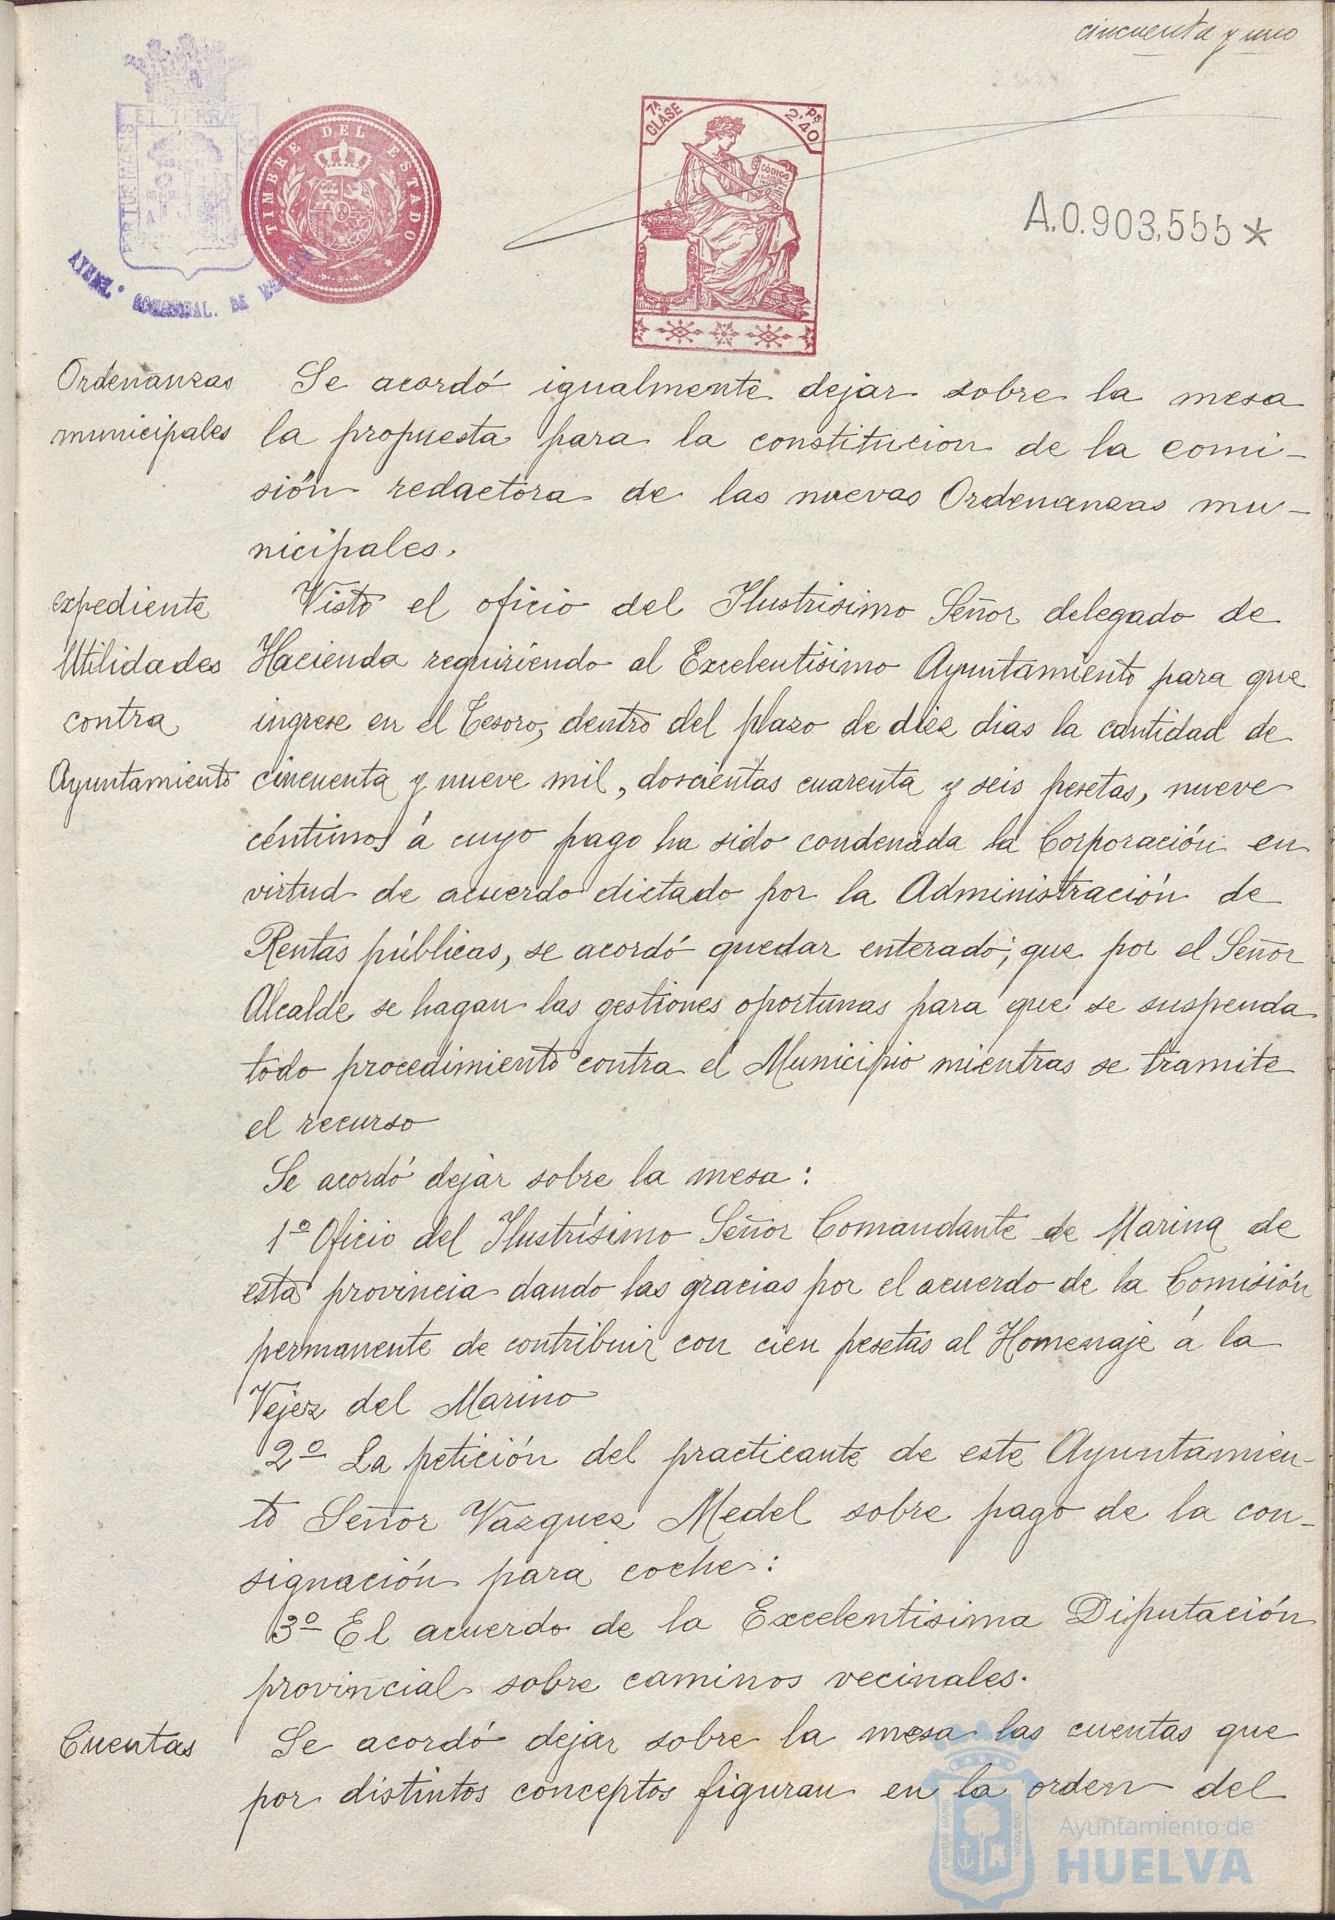 cincuenta y uno
ET TERRAE
PORTUS MARIS
AYUNT. CONSTITUCIONAL. DE HUELVA
TIMBRE DEL ESTADO
7ª CLASE
Ps 2'40
CÓDIGO
A.0.903,555*
Ordenanzas
municipales
Se acordó igualmente dejar sobre la mesa
la propuesta para la constitucion de la comi-
sión redactora de las nuevas Ordenanzas mu-
nicipales.
expediente
Utilidades
contra
Ayuntamiento
Visto el oficio del Ilustrisimo Señor delegado de
Hacienda requiriendo al Excelentisimo Ayuntamiento para que
ingrese en el Tesoro, dentro del plazo de diez dias la cantidad de
cincuenta y nueve mil, doscientas cuarenta y seis pesetas, nueve
céntimos á cuyo pago ha sido condenada la Corporación en
virtud de acuerdo dictado por la Administración de
Rentas públicas, se acordó quedar enterado; que por el Señor
Alcalde se hagan las gestiones oportunas para que se suspenda
todo procedimiento contra el Municipio mientras se tramite
el recurso
Se acordó dejar sobre la mesa:
1º Oficio del Ilustrísimo Señor Comandante de Marina de
esta provincia dando las gracias por el acuerdo de la Comisión
permanente de contribuir con cien pesetas al Homenaje á la
Vejez del Marino
2º La petición del practicante de este Ayuntamien-
to Señor Vazquez Medel sobre pago de la con-
signación para coche:
3º El acuerdo de la Excelentisima Diputación
provincial sobre caminos vecinales.
Cuentas
Se acordó dejar sobre la mesa las cuentas que
por distintos conceptos figuran en la orden del
Ayuntamiento de
HUELVA